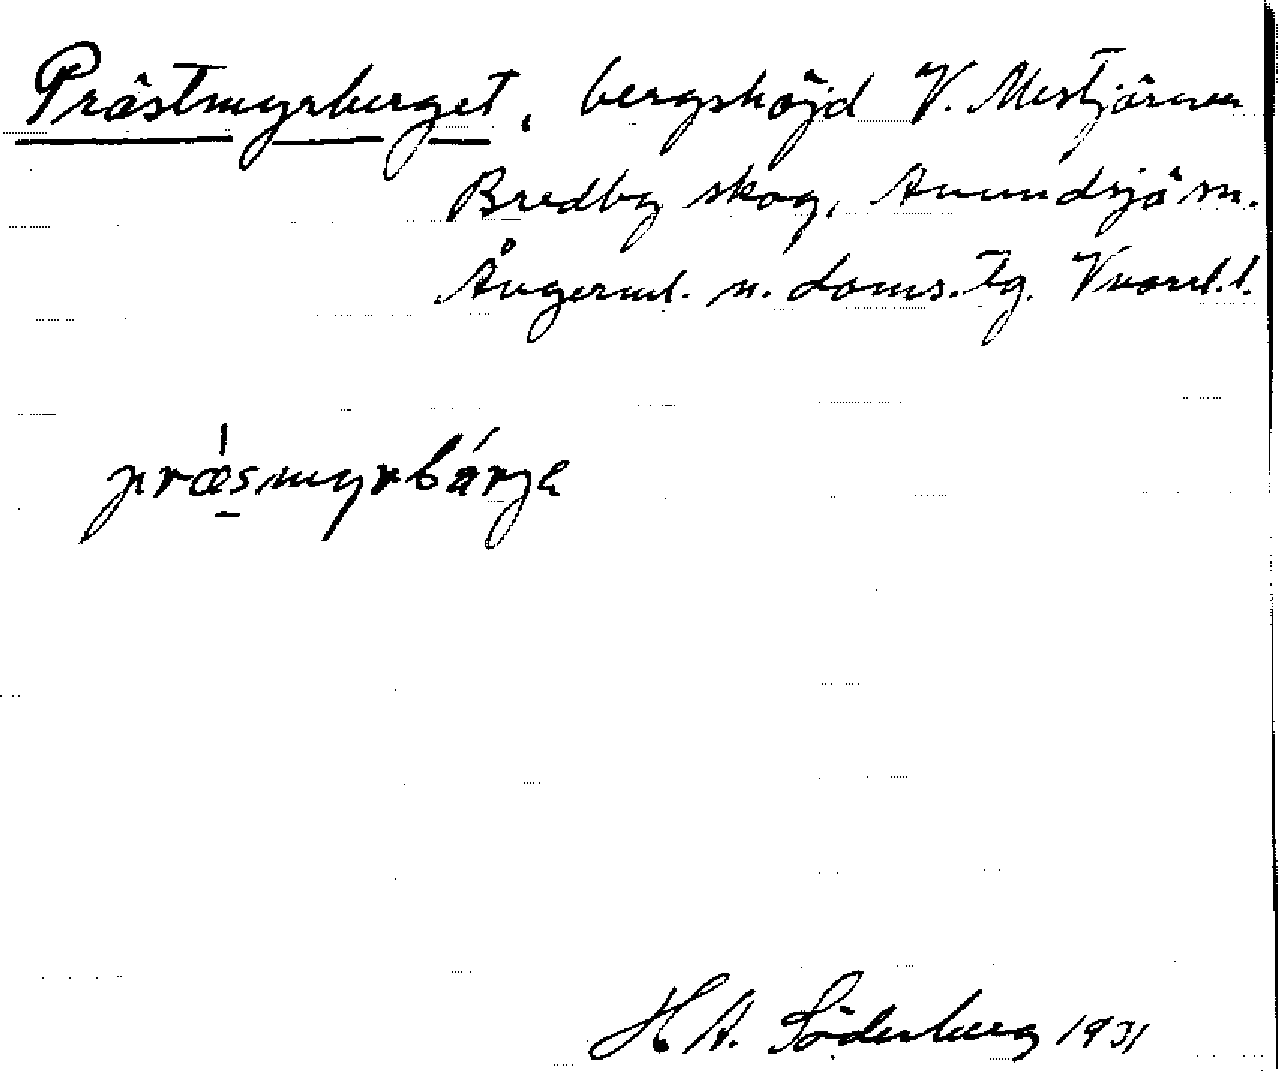 Prästmyrberget, bergshöjd V. Mestjärnen
Bredby skog, Anundsjö sn.
Ångerml. n. doms. tg. Vnorrl. l.
præsmyrbárje
H A. Söderberg 1931